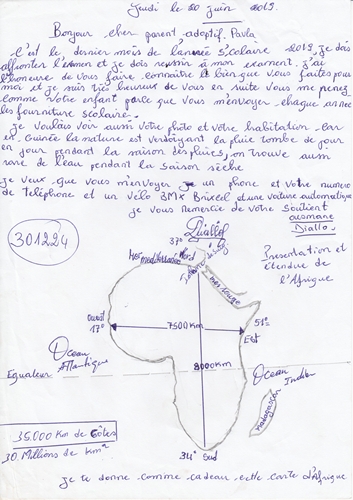 Jeudi le 20 juin 2019.
Bonjour cher parent adoptif. Pavla.
C'est le dernier mois de l'année scolaire 2019. je dois
affronter l'examen et je dois reussir à mon exament. j'ai
l'honneure de vous faire connaître le bien que vous faites pour
moi et je suis très heureux de vous en suite vous me prenez
comme votre enfant parce que vous m'envoyer chaque année
les fourniture scolaire.
je voulais voir aussi votre photo et votre habitation. car
en Guinée la nature est verdoyant la pluie tombe de jour
en jour pendant la saison des pluies, on trouve aussi
rare de l'eau pendant la saison sèche
je veux que vous m'envoyer un phone et votre numero
de telephone et un vélo BMX Brixeel et une voiture automatique
je vous remercie de votre soutient
ousmane
Diallo.
301224
Diallo
37°
Nord
Mer mediterranée
mer rouge
Presentation et
étendue de
l'Afrique
Ouest
17°
7500 Km
51°
Est
8000 Km
Ocean
Atlantique
Equateur
Ocean
Indien
Madagascar
35.000 Km de côtes
30 Millions de km²
34° Sud
je te donne comme cadeau cette carte d'Afrique